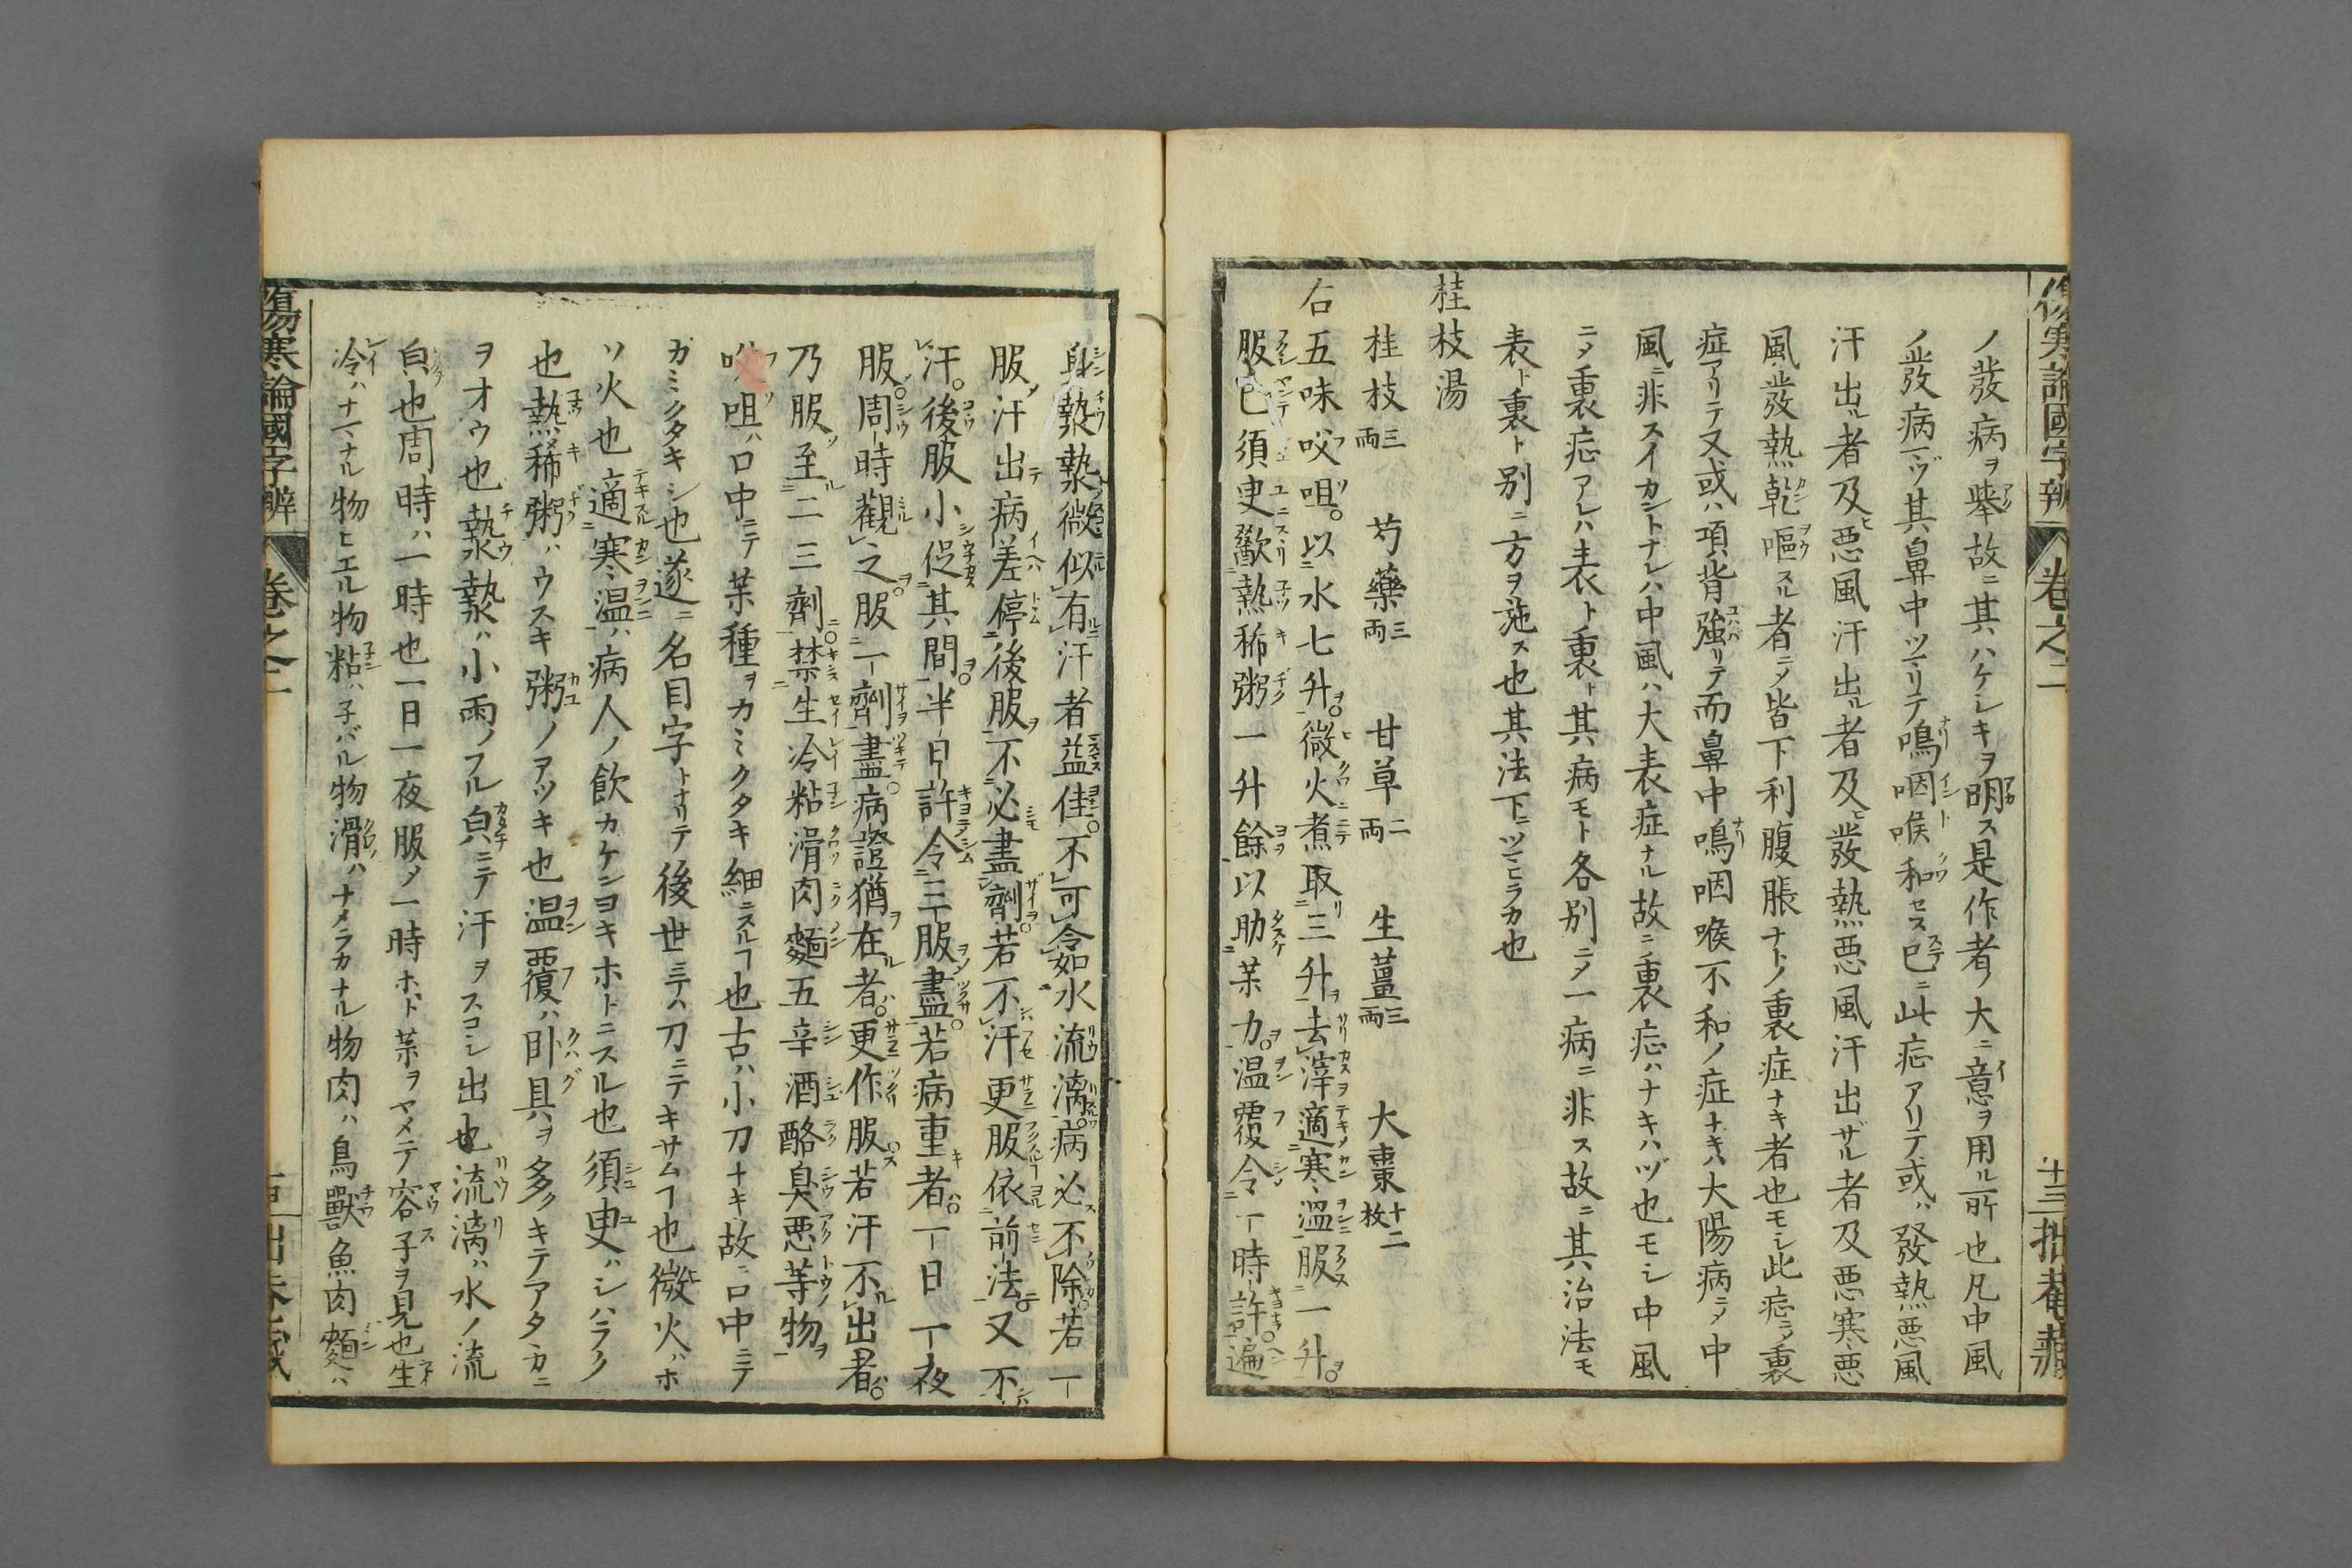 傷寒論國字辨 卷之二 十三 拙菴藏
ノ發病ヲ擧故ニ其ハケシキヲ明ス是作者ノ大ニ意ヲ用ル所也凡中風
ノ發病マヅ其鼻中ツマリテ鳴咽喉和セス已ニ此症アリテ或ハ發熱惡風
汗出ル者及ヒ惡風汗出ル者及ヒ發熱惡風汗出ザル者及惡寒惡
風發熱乾嘔スル者ニメ皆下利腹脹ナトノ裏症ナキ者也モシ此症ニメ裏
症アリテ又或ハ項背強リテ而鼻中鳴咽喉不和ノ症ナキハ大陽病ニメ中
風ニ非スイカントナレハ中風ハ大表症ナル故ニ裏症ハナキハヅ也モシ中風
ニメ裏症アレハ表ト裏ト其病モト各別ニメ一病ニ非ス故ニ其治法モ
表ト裏ト別ニ方ヲ施ス也其法下ニツマヒラカ也
桂枝湯
桂枝三両 芍藥三両 甘草二両 生薑三両 大棗十二枚
右五味㕮咀以水七升微火煮取三升去滓適寒温服一升
服已須臾歠熱稀粥一升餘以助薬力温覆令一時許遍
身漐漐微似有汗者益佳不可令如水流漓病必不除若一
服汗出病差停後服不必盡劑若不汗更服依前法又不
汗後服小促其間半日許令三服盡若病重者一日一夜
服周時觀之服一劑盡病證猶在者更作服若汗不出者
乃服至二三劑禁生冷粘滑肉麵五辛酒酪臭惡等物
咀ハ口中ニテ薬種ヲカミクタキ細ニスルヿ也古ハ小刀ナキ故ニ口中ニテ
カミクタキシ也遂ニ名目字トナリテ後世ニテハ刀ニテキサムヿ也微火ハホ
ソ火也適寒温ハ病人ノ飲カケンヨキホトニスル也須臾ハシハラク
也熱稀粥ハウスキ粥ノアツキ也温覆ハ臥具ヲ多クキテアタヽカニ
ヲオウ也漐漐ハ小雨ノフル皃ニテ汗ヲスコシ出也流漓ハ水ノ流
皃也周時ハ一時也一日一夜服メ一時ホト薬ヲヤメテ容子ヲ見也生
冷ハナマナル物ヒエル物粘ハ子バル物滑ハナメラカナル物肉ハ鳥獸魚肉麵ハ
傷寒論國字辨 卷之二